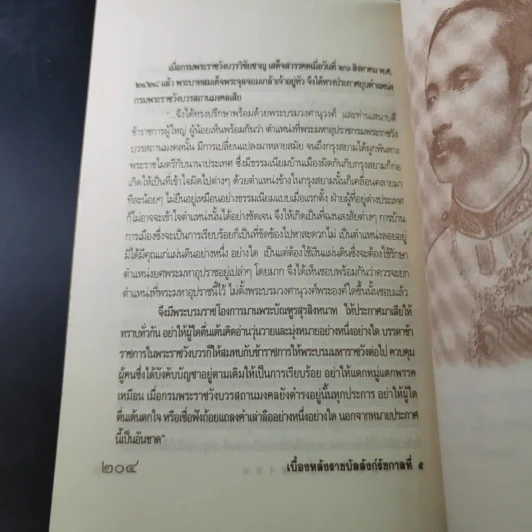 เมื่อกรมพระราชวังบวรวิชัยชาญ เสด็จสวรรคตเมื่อวันที่ ๒๘ สิงหาคม พ.ศ.
๒๔๒๘ แล้ว พระบาทสมเด็จพระจุลจอมเกล้าเจ้าอยู่หัว จึงได้ทรงประกาศยุบตำแหน่ง
กรมพระราชวังบวรสถานมงคลเสีย
"...จึงได้ทรงปรึกษาพร้อมด้วยพระบรมวงศานุวงศ์ และท่านเสนาบดี
ข้าราชการผู้ใหญ่ ผู้น้อยเห็นพร้อมกันว่า ตำแหน่งที่พระมหาอุปราชกรมพระราชวัง
บวรสถานมงคลนั้น มีการเปลี่ยนแปลงมาหลายสมัย จนถึงกรุงสยามได้ผูกพันทาง
พระราชไมตรีกับนานาประเทศ ซึ่งมีธรรมเนียมบ้านเมืองผิดกันกับกรุงสยามก็ก่อ
เกิดให้เป็นที่เข้าใจผิดไปต่างๆ ด้วยตำแหน่งข้างในกรุงสยามนั้นก็เคลื่อนคลายมา
ทีละน้อยๆ ไม่ยืนอยู่เหมือนอย่างธรรมเนียมแบบเมื่อแรกตั้ง ฝ่ายผู้ที่อยู่ต่างประเทศ
ก็ไม่อาจจะเข้าใจตำแหน่งนั้นได้อย่างชัดเจน จึงให้เกิดเป็นที่ฉงนสงสัยต่างๆ การบ้าน
การเมืองซึ่งจะเป็นการเรียบร้อยก็เป็นที่ขัดข้องไปหาสะดวกไม่ เป็นตำแหน่งลอยอยู่
มิได้มีคุณแก่แผ่นดินอย่างหนึ่ง อย่างใด เป็นแต่ต้องใช้เงินแผ่นดินซึ่งจะต้องใช้รักษา
ตำแหน่งยศพระมหาอุปราชอยู่เปล่าๆ โดยมาก จึงได้เห็นชอบพร้อมกันว่าควรจะยก
ตำแหน่งที่พระมหาอุปราชนี้ไว้ ไม่ตั้งพระบรมวงศานุวงศ์พระองค์ใดขึ้นนั้นชอบแล้ว
จึงมีพระบรมราชโองการมานพระบัณฑูรสุรสิงหนาท ให้ประกาศมาเสียให้
ทราบทั่วกัน อย่าให้ผู้ใดตื่นเต้นคิดอ่านวุ่นวายและมุ่งหมายอย่างหนึ่งอย่างใด บรรดาข้า
ราชการในพระราชวังบวรก็ให้สมทบกับข้าราชการให้พระบรมมหาราชวังต่อไป ควบคุม
ผู้คนซึ่งได้บังคับบัญชาอยู่ตามเดิมให้เป็นการเรียบร้อย อย่าให้แตกหมู่แตกพรรค
เหมือน เมื่อกรมพระราชวังบวรสถานมงคลยังดำรงอยู่นั้นทุกประการ อย่าให้ผู้ใด
ตื่นเต้นตกใจ หรือเชื่อฟังถ้อยแถลงคำเล่าลืออย่างหนึ่งอย่างใด นอกจากหมายประกาศ
นี้เป็นอันขาด"
๒๐๔ เบื้องหลังราชบัลลังก์รัชกาลที่ ๕